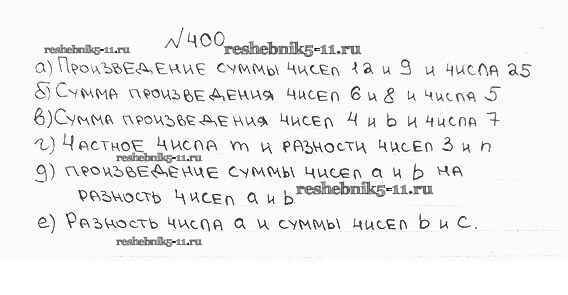 №400
reshebnik5-11.ru reshebnik5-11.ru
а) Произведение суммы чисел 12 и 9 и числа 25
б) Сумма произведения чисел 6 и 8 и числа 5
в) Сумма произведения чисел 4 и b и числа 7
г) Частное числа m и разности чисел 3 и n
reshebnik5-11.ru
д) произведение суммы чисел a и b на
reshebnik5-11.ru
разность чисел a и b
е) Разность числа a и суммы чисел b и c.
reshebnik5-11.ru